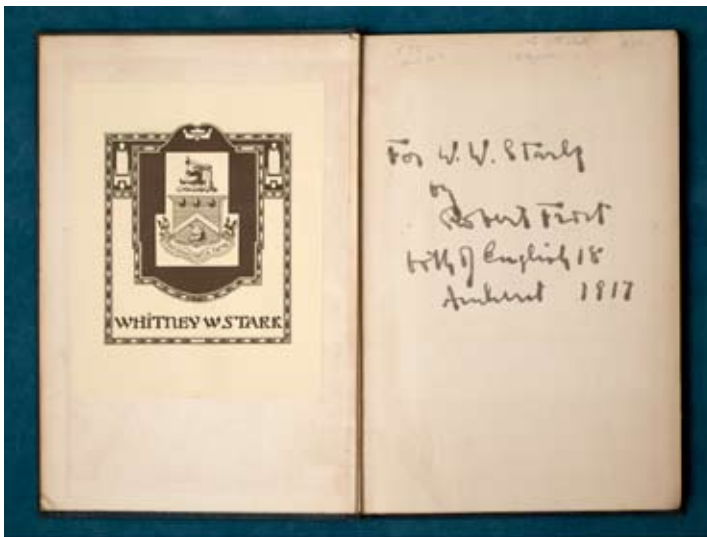 WHITNEY W. STARK
For W. W. Stark
by
Robert Frost
of English 18
Amherst 1917